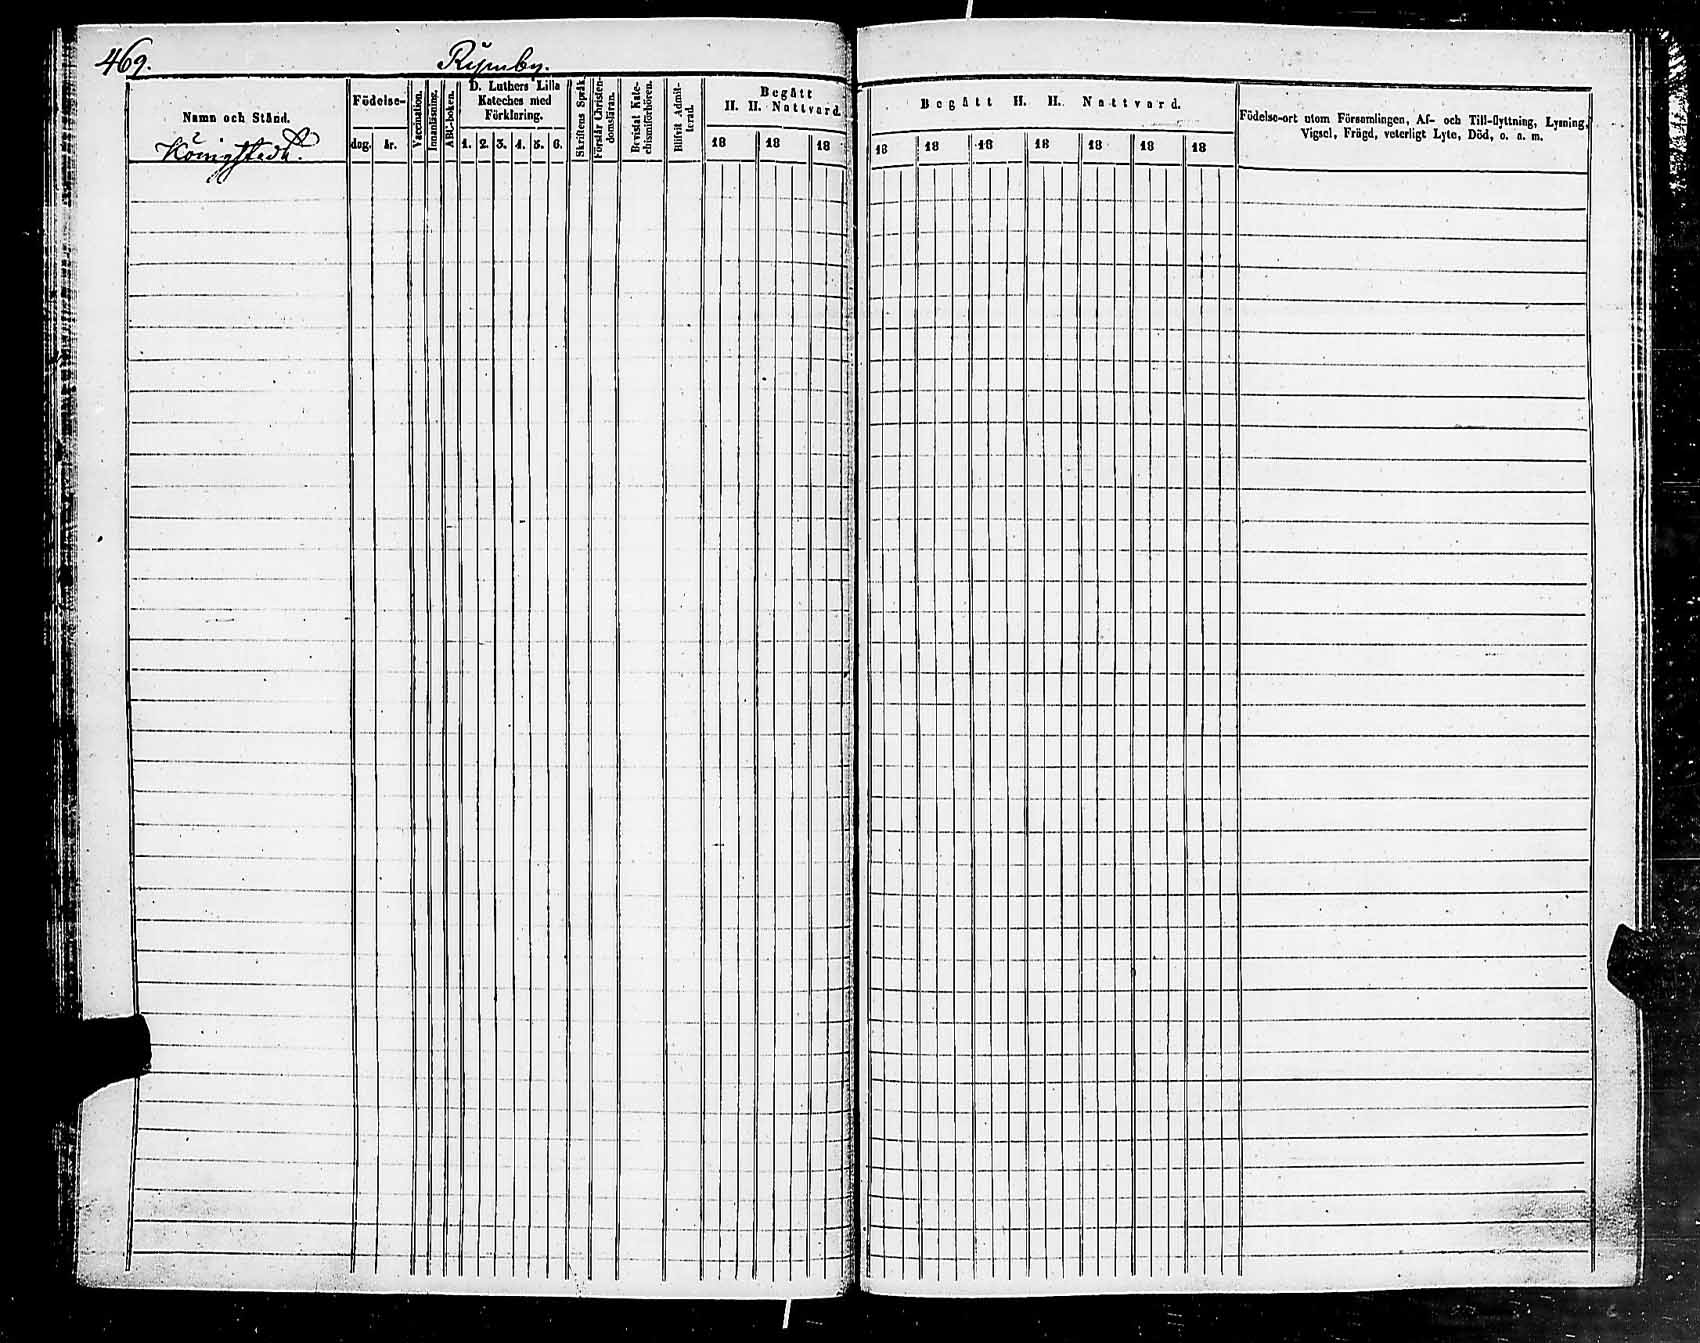 469. Rymby.
Namn och Stånd.
Königstedt.
Födelse-
dag. år.
Vaccination.
Innanläsning.
ABC-boken.
D. Luthers Lilla
Kateches med
Förklaring.
1. 2. 3. 4. 5. 6.
Skriftens Språk.
Förstår Christen-
domsläran.
Bevistat Kate-
chismiförhören.
Blifvit Admit-
terad.
Begått
H. H. Nattvard.
18 18 18
Begått H. H. Nattvard.
18 18 18 18 18 18 18
Födelse-ort utom Församlingen, Af- och Till-flyttning, Lysning,
Vigsel, Frägd, veterligt Lyte, Död, o. a. m.